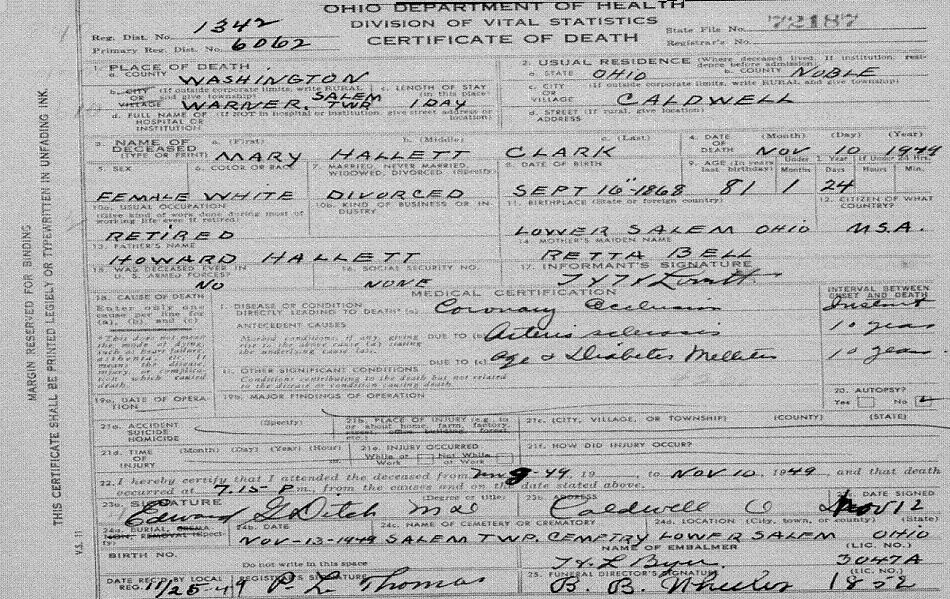 OHIO DEPARTMENT OF HEALTH
DIVISION OF VITAL STATISTICS
CERTIFICATE OF DEATH
Reg. Dist. No. 1342
Primary Reg. Dist. No. 6062
State File No. 72187
Registrar's No.
MARGIN RESERVED FOR BINDING
THIS CERTIFICATE SHALL BE PRINTED LEGIBLY OR TYPEWRITTEN IN UNFADING INK.
V.S. 11
1. PLACE OF DEATH
a. COUNTY WASHINGTON
b. CITY (If outside corporate limits, write RURAL and give township)
OR
VILLAGE WARNER, SALEM TWP.
c. LENGTH OF STAY (in this place)
1 DAY
d. FULL NAME OF (If NOT in hospital or institution, give street address or location)
HOSPITAL OR
INSTITUTION
2. USUAL RESIDENCE (Where deceased lived. If institution, residence before admission)
a. STATE OHIO b. COUNTY NOBLE
c. CITY (If outside corporate limits, write RURAL and give township)
OR
VILLAGE CALDWELL
d. STREET (If rural, give location)
ADDRESS
3. NAME OF DECEASED (TYPE OR PRINT)
a. (First) b. (Middle) c. (Last)
MARY HALLETT CLARK
4. DATE OF DEATH (Month) (Day) (Year)
NOV 10 1949
5. SEX
FEMALE
6. COLOR OR RACE
WHITE
7. MARRIED, NEVER MARRIED, WIDOWED, DIVORCED (Specify)
DIVORCED
8. DATE OF BIRTH
SEPT 16 1868
9. AGE (In years last birthday) Under 1 Year If Under 24 Hrs.
Months Days Hours Min.
81 1 24
10a. USUAL OCCUPATION (Give kind of work done during most of working life even if retired)
RETIRED
10b. KIND OF BUSINESS OR INDUSTRY
11. BIRTHPLACE (State or foreign country)
LOWER SALEM OHIO
12. CITIZEN OF WHAT COUNTRY?
U.S.A.
13. FATHER'S NAME
HOWARD HALLETT
14. MOTHER'S MAIDEN NAME
RETTA BELL
15. WAS DECEASED EVER IN U. S. ARMED FORCES?
NO
16. SOCIAL SECURITY NO.
NONE
17. INFORMANT'S SIGNATURE
18. CAUSE OF DEATH
Enter only one cause per line for (a), (b), and (c)
*This does not mean the mode of dying, such as heart failure, asthenia, etc. It means the disease, injury, or complication which caused death.
MEDICAL CERTIFICATION
INTERVAL BETWEEN ONSET AND DEATH
I. DISEASE OR CONDITION
DIRECTLY LEADING TO DEATH* (a) Coronary Occlusion Instant
ANTECEDENT CAUSES
Morbid conditions, if any, giving rise to the above cause (a) stating the underlying cause last.
DUE TO (b) Arterio sclerosis 10 years
DUE TO (c) Age & Diabetes Mellitus 10 years
II. OTHER SIGNIFICANT CONDITIONS
Conditions contributing to the death but not related to the disease or condition causing death.
19a. DATE OF OPERATION
19b. MAJOR FINDINGS OF OPERATION
20. AUTOPSY?
Yes No
21a. ACCIDENT (Specify)
SUICIDE
HOMICIDE
21b. PLACE OF INJURY (e.g., in or about home, farm, factory, street, office building, forest, etc.)
21c. (CITY, VILLAGE, OR TOWNSHIP) (COUNTY) (STATE)
21d. TIME OF INJURY (Month) (Day) (Year) (Hour)
21e. INJURY OCCURRED
While at Work Not While at Work
21f. HOW DID INJURY OCCUR?
22. I hereby certify that I attended the deceased from 9-49, 19 to NOV 10, 1949, and that death
occurred at 7.15 P m., from the causes and on the date stated above.
23a. SIGNATURE (Degree or title)
Edward G Ditch MD
23b. ADDRESS
Caldwell O
23c. DATE SIGNED
Nov 12
24a. BURIAL, CREMATION, REMOVAL (Specify)
24b. DATE
NOV-13-1949
24c. NAME OF CEMETERY OR CREMATORY
SALEM TWP. CEMETRY
24d. LOCATION (City, town, or county) (State)
LOWER SALEM OHIO
BIRTH NO.
Do not write in this space
NAME OF EMBALMER (LIC. NO.)
3047A
DATE REC'D BY LOCAL REG. 11/25-49
REGISTRAR'S SIGNATURE
P. L. Thomas
25. FUNERAL DIRECTOR'S SIGNATURE (LIC. NO.)
B. B. Wheeler 1852